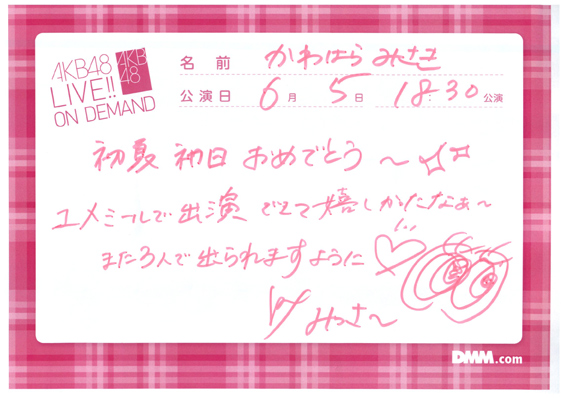 AKB48
LIVE!!
ON DEMAND
AKB
48
名前 かわはらみさき
公演日 6月 5日 18:30 公演
初夏 初日 おめでとう〜
ユメミ〜ルで出演 できて嬉しかったなぁ〜
また3人で出られますように
みっさ〜
DMM.com